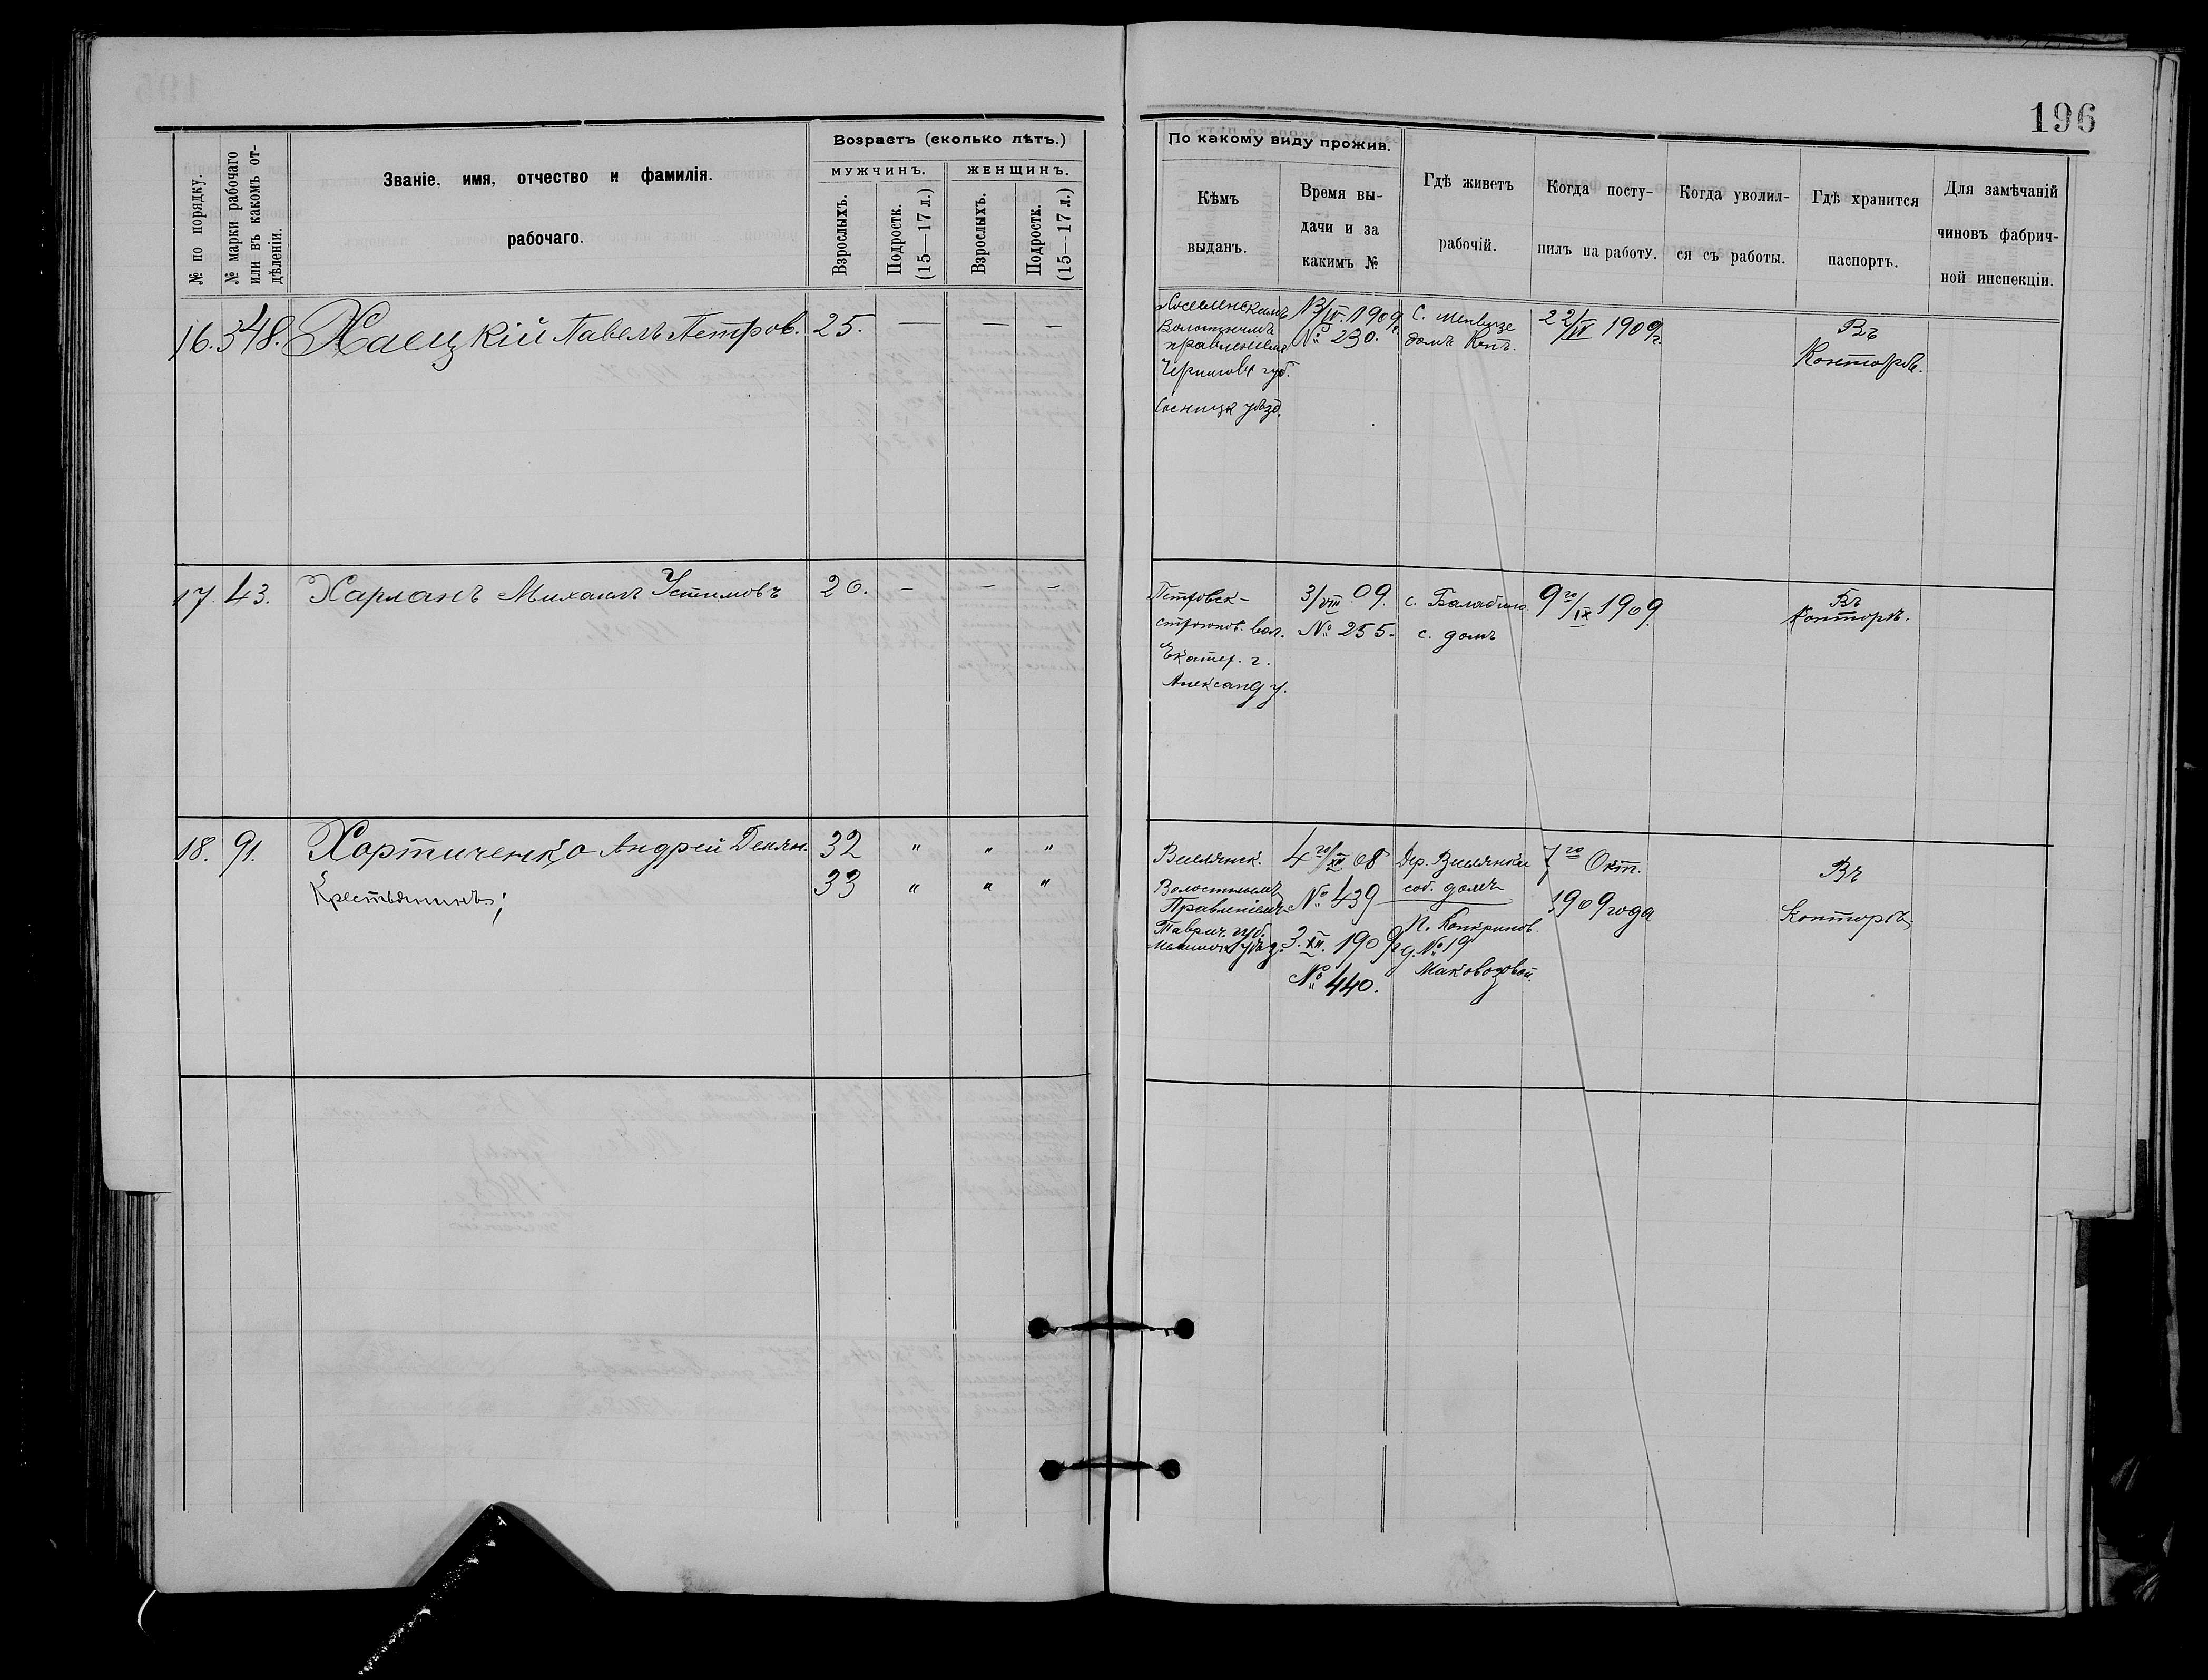 196
№ по порядку.
№ марки рабочаго или въ какомъ отдѣленіи.
Званіе, имя, отчество и фамилія рабочаго.
Возрастъ (сколько лѣтъ.)
МУЖЧИНЪ.
ЖЕНЩИНЪ.
Взрослыхъ.
Подростк. (15—17 л.)
Взрослыхъ.
Подростк. (15—17 л.)
По какому виду прожив.
Кѣмъ выданъ.
Время выдачи и за какимъ №
Гдѣ живетъ рабочій.
Когда поступилъ на работу.
Когда уволился съ работы.
Гдѣ хранится паспортъ.
Для замѣчаній чиновъ фабричной инспекціи.
16. 348. Хаецкій Павелъ Петров. 25. — — —
Волостнымъ
правленіемъ
Чернигов губ.
Сосницк уѣзд.
13/IV. 1909 г.
№ 230.
С.
домъ
22/IV 1909 г.
Въ
Конторѣ.
17. 43. Харланъ Михаилъ Устимовъ 20. — — —
Петровск-
вол.
Екатер. г.
Александ у.
3/VIII 09.
№ 255.
с. Балабино
с. домъ
9го/IX 1909.
Въ
Конторѣ.
18. 91. Хортиченко Андрей Демян. 32 " " "
Крестьянинъ; 33 " " "
Волостнымъ
Правленіемъ
Таврич. губ.
уѣзд.
4го/XII 08
№ 439
3. XII. 1909 г.
№ 440.
Дер.
соб. домъ
д. № 19
7го Окт.
1909 года
Въ
Конторѣ